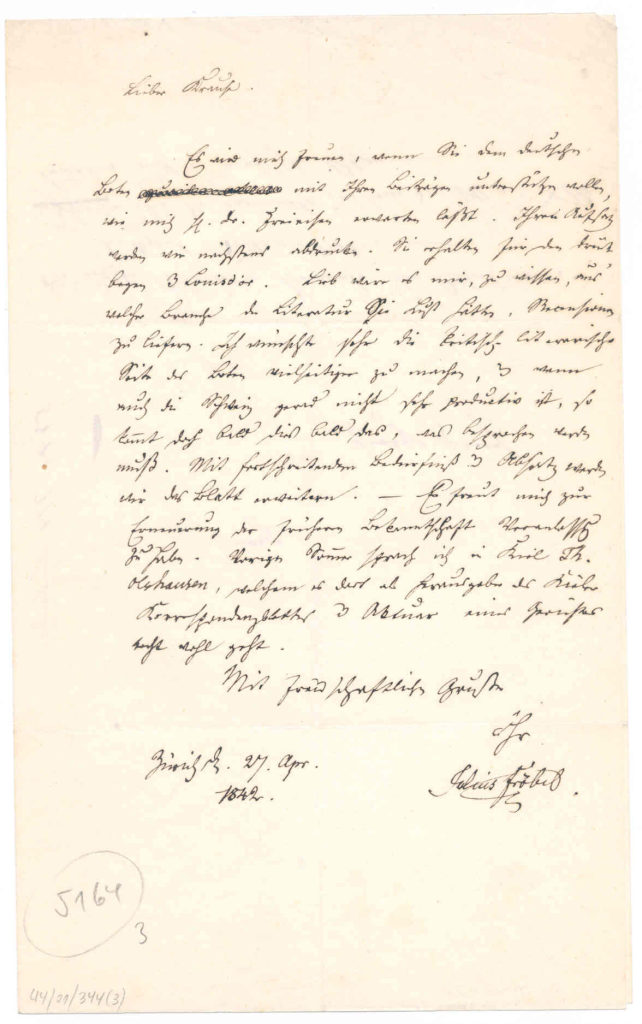 Lieber Krause.
Es wird mich freuen, wenn Sie dem deutschen
Boten mit Ihren Beiträgen unterstützen wollen,
wie mich H. Dr. erwarten läßt. Ihren Aufsatz
werden wir nächstens abdrucken. Sie erhalten für den Druck
bogen 3 Louisd'or. Lieb wäre es mir, zu wissen, aus
welcher Branche der Literatur Sie Lust hätten, Recensionen
zu liefern. Ich wünschte sehr die kritisch-literarische
Seite des Boten vielseitiger zu machen, & wenn
auch die Schweiz gerad nicht sehr productiv ist, so
kommt doch bald dies bald das, was besprochen werden
muß. Mit fortschreitendem Bedürfniß & Absatz werden
wir das Blatt erweitern. — Es freut mich zur
Erneuerung der früheren Bekanntschaft Veranlassg
zu haben. Vorigen Sommer sprach ich in Kiel Th.
Olshausen, welchem es dort als Herausgeber des Kieler
Korrespondenzblattes & Aktuar eines Gerichtes
recht wohl geht.
Mit freundschaftlichen Gruße
Ihr
Zürich d. 27. Apr.
1842.
Julius Fröbel.
5164
3
44/01/344(3)